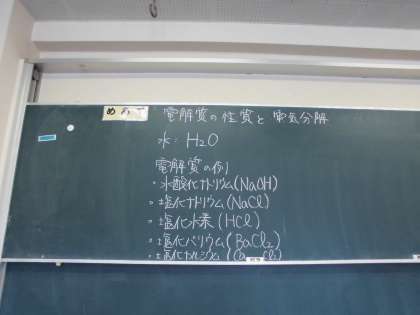 めあて 電解質の性質と電気分解
水：H₂O
電解質の例り
・水酸化ナトリウム(NaOH)
・塩化ナトリウム(NaCl)
・塩化水素(HCl)
・塩化バリウム(BaCl₂)
・塩化カルシウム(